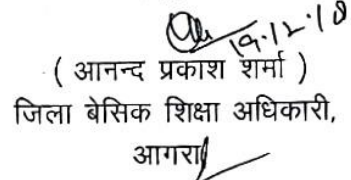 19.12.18
( आनन्द प्रकाश शर्मा )
जिला बेसिक शिक्षा अधिकारी,
आगरा